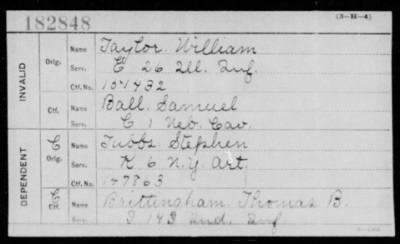 182848
(3-H-4)
INVALID
Orig.
Name Taylor. William
Serv. E 26 Ill. Inf.
Ctf. No. 151432
Ctf.
Name Ball. Samuel
Serv. C 1 Neb. Cav.
DEPENDENT
C
Orig.
Name Tubbs Stephen
Serv. K 6 N.Y. Art.
Ctf. No. 147863
C
Ctf.
Name Brittingham. Thomas B.
Serv. I 143 Ind. Inf